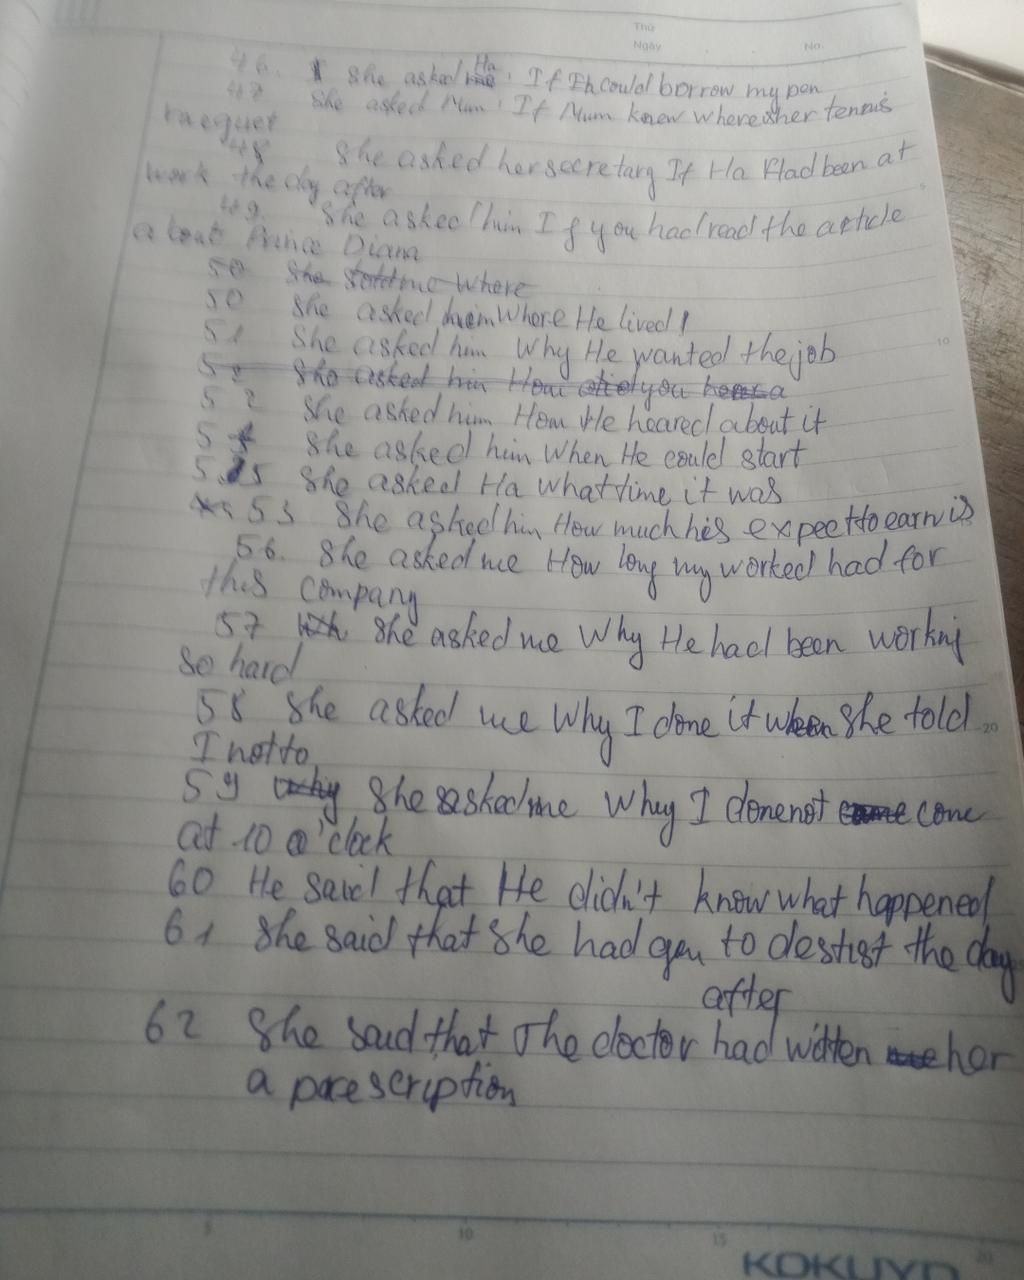 Thứ
Ngày No.
46. She asked Ha: If Eh could borrow my pen
47 She asked Mum: If Mum knew where is her tennis
racquet
48 She asked her secretary If Ha Had been at
work the day after
49. She asked him If you had read the article
about Prince Diana
50 She told me where
50 She asked him Where He lived
51 She asked him Why He wanted the job
52 She asked him How did you
52 She asked him How He heared about it
5 She asked him When He could start
5 5 She asked Ha what time it was
53 She asked him How much his expect to earn is
56. She asked me How long my worked had for
this company
57 She asked me Why He had been working
so hard
58 She asked me Why I done it when She told
I not to
59 She asked me Whey I done not come
at 10 o'clock
60 He said that He didn't know what happened
61 She said that She had gon to destist the day
after
62 She said that The doctor had witten her
a prescription
5 10 15 20
KOKUYO